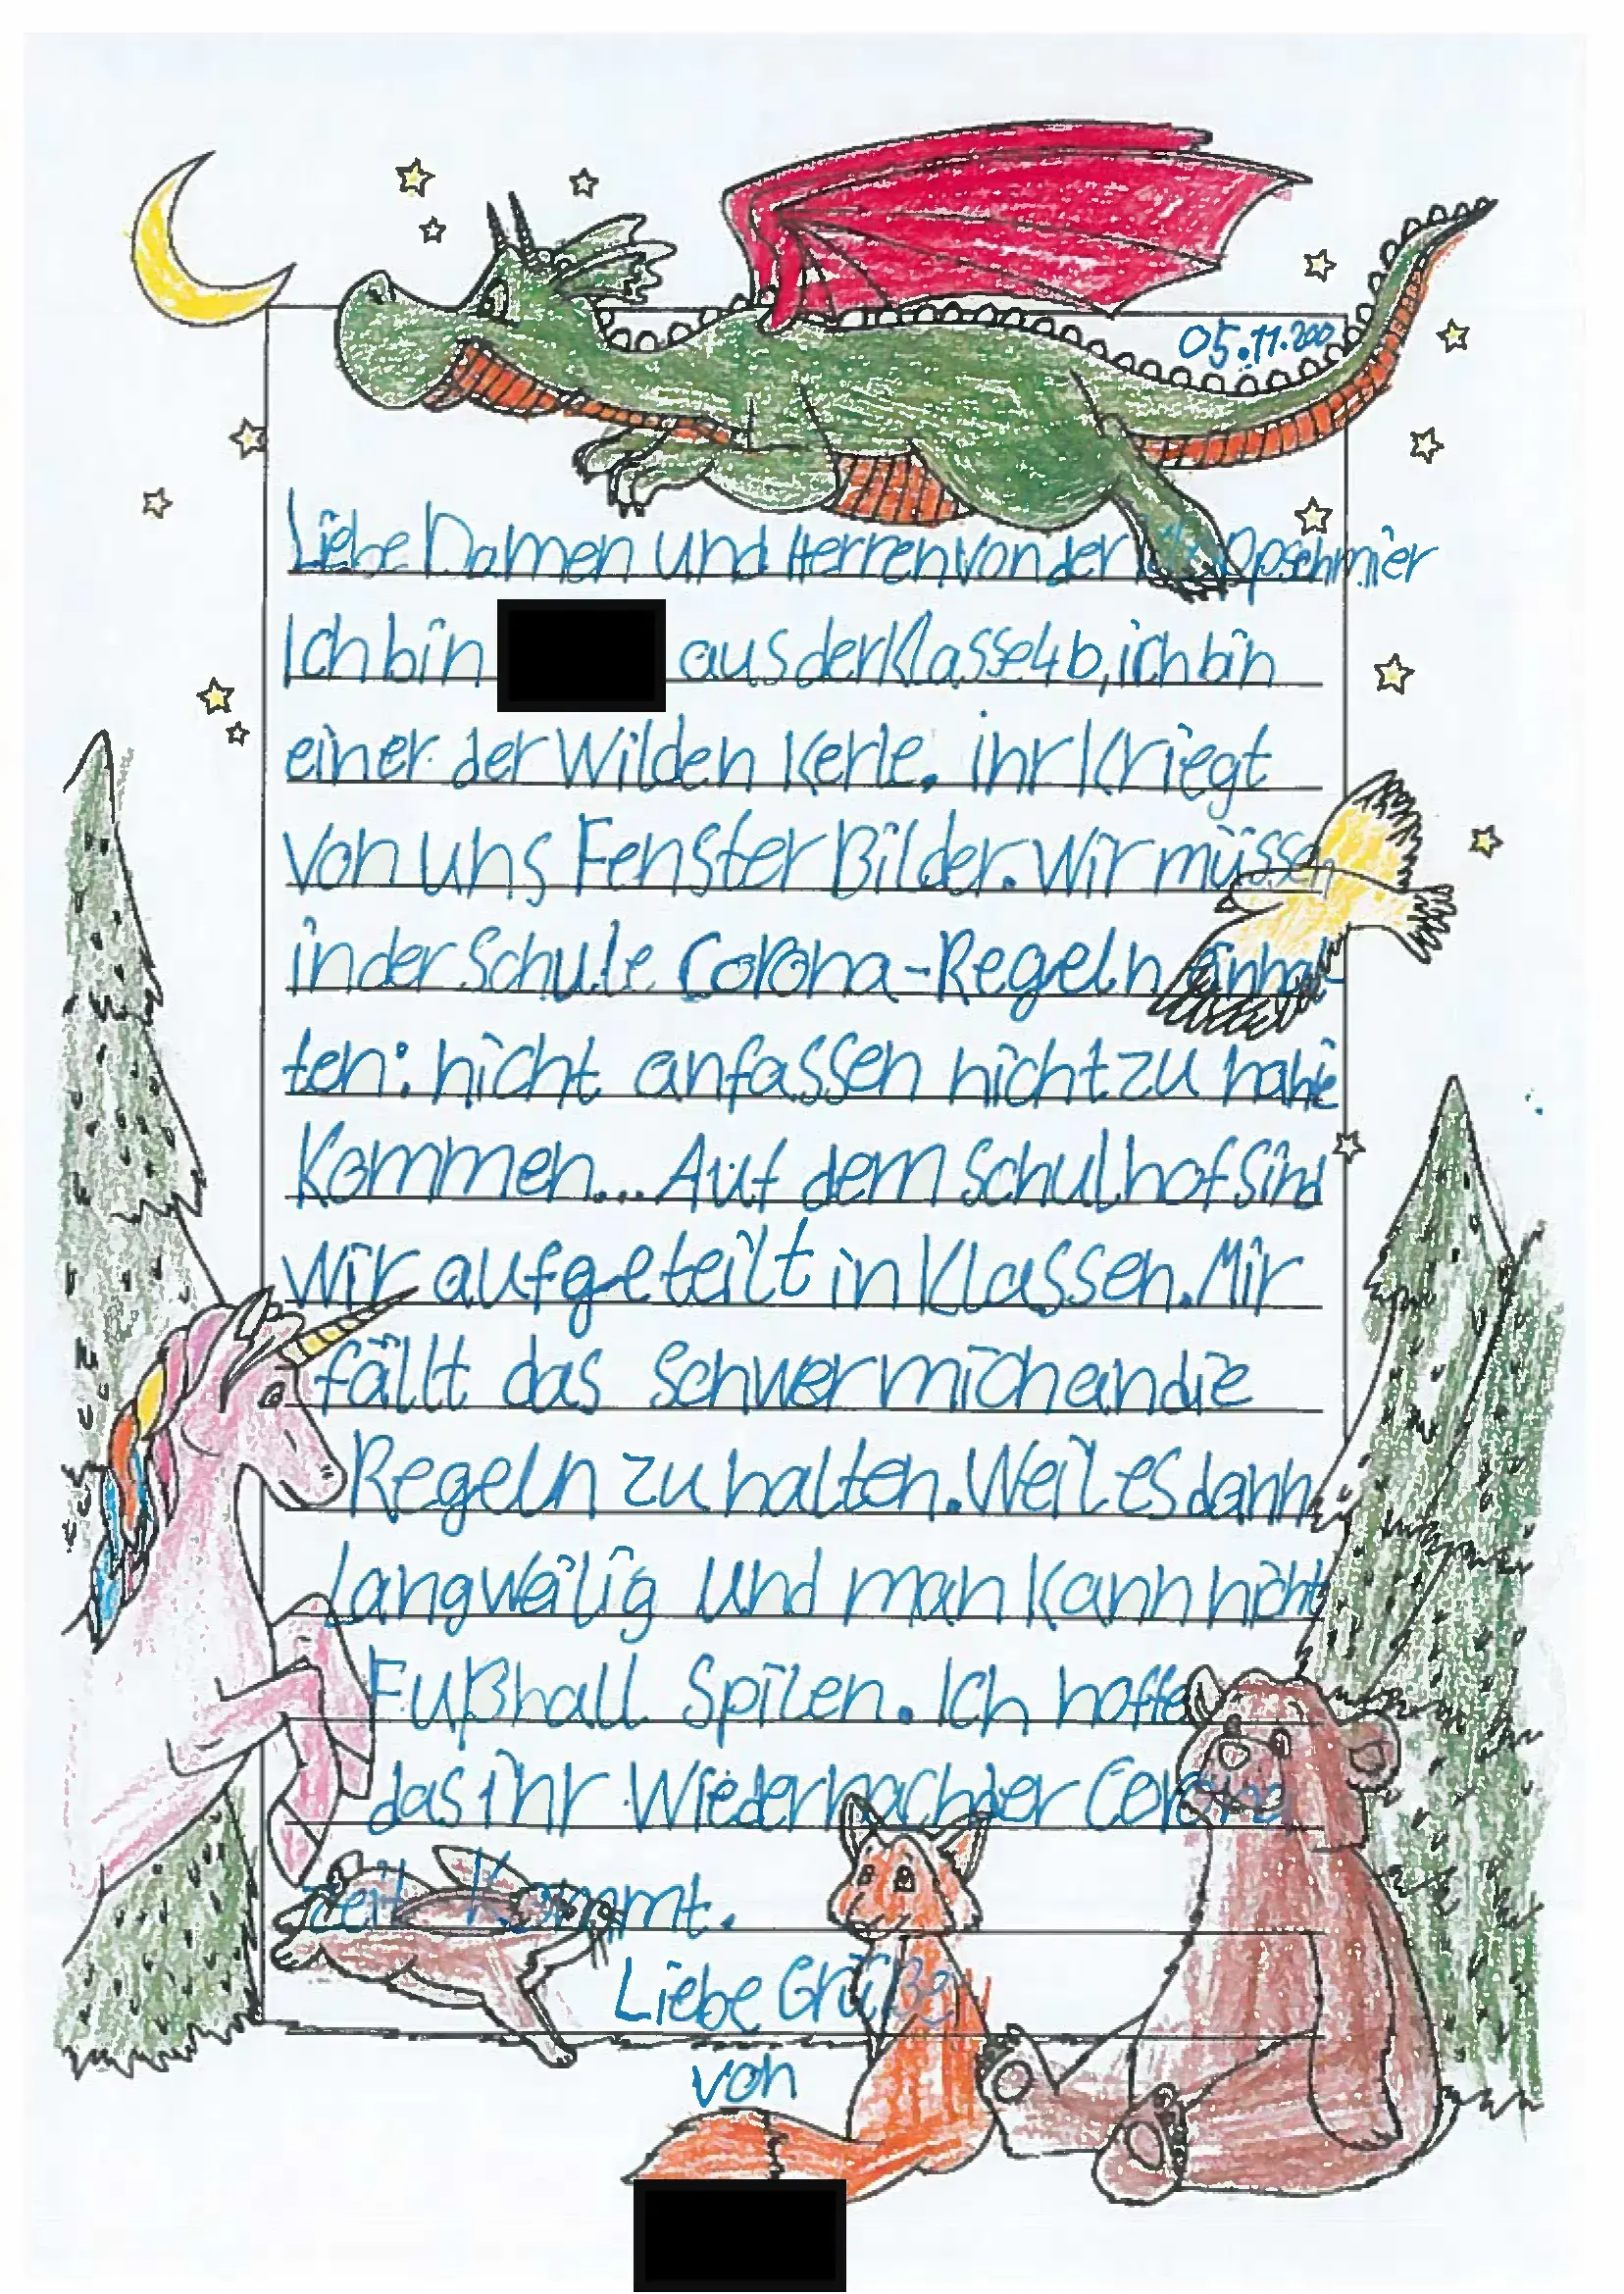 05.11.200
Liebe Damen und Herren von der Opschmier
Ich bin aus der Klasse 4b, ich bin
einer der Wilden Kerle. ihr Kriegt
von uns Fenster Bilder. Wir müssen
in der Schule Corona-Regeln einhal-
ten: nicht anfassen nicht zu nahe
Kommen... Auf dem Schulhof sind
wir aufgeteilt in Klassen. Mir
fällt das schwer mich an die
Regeln zu halten. Weil es dann
langweilig und man kann nicht
Fußball Spilen. Ich hoffe
das ihr Wieder nach der Corona
zeit Kommt.
Liebe Grüße
von